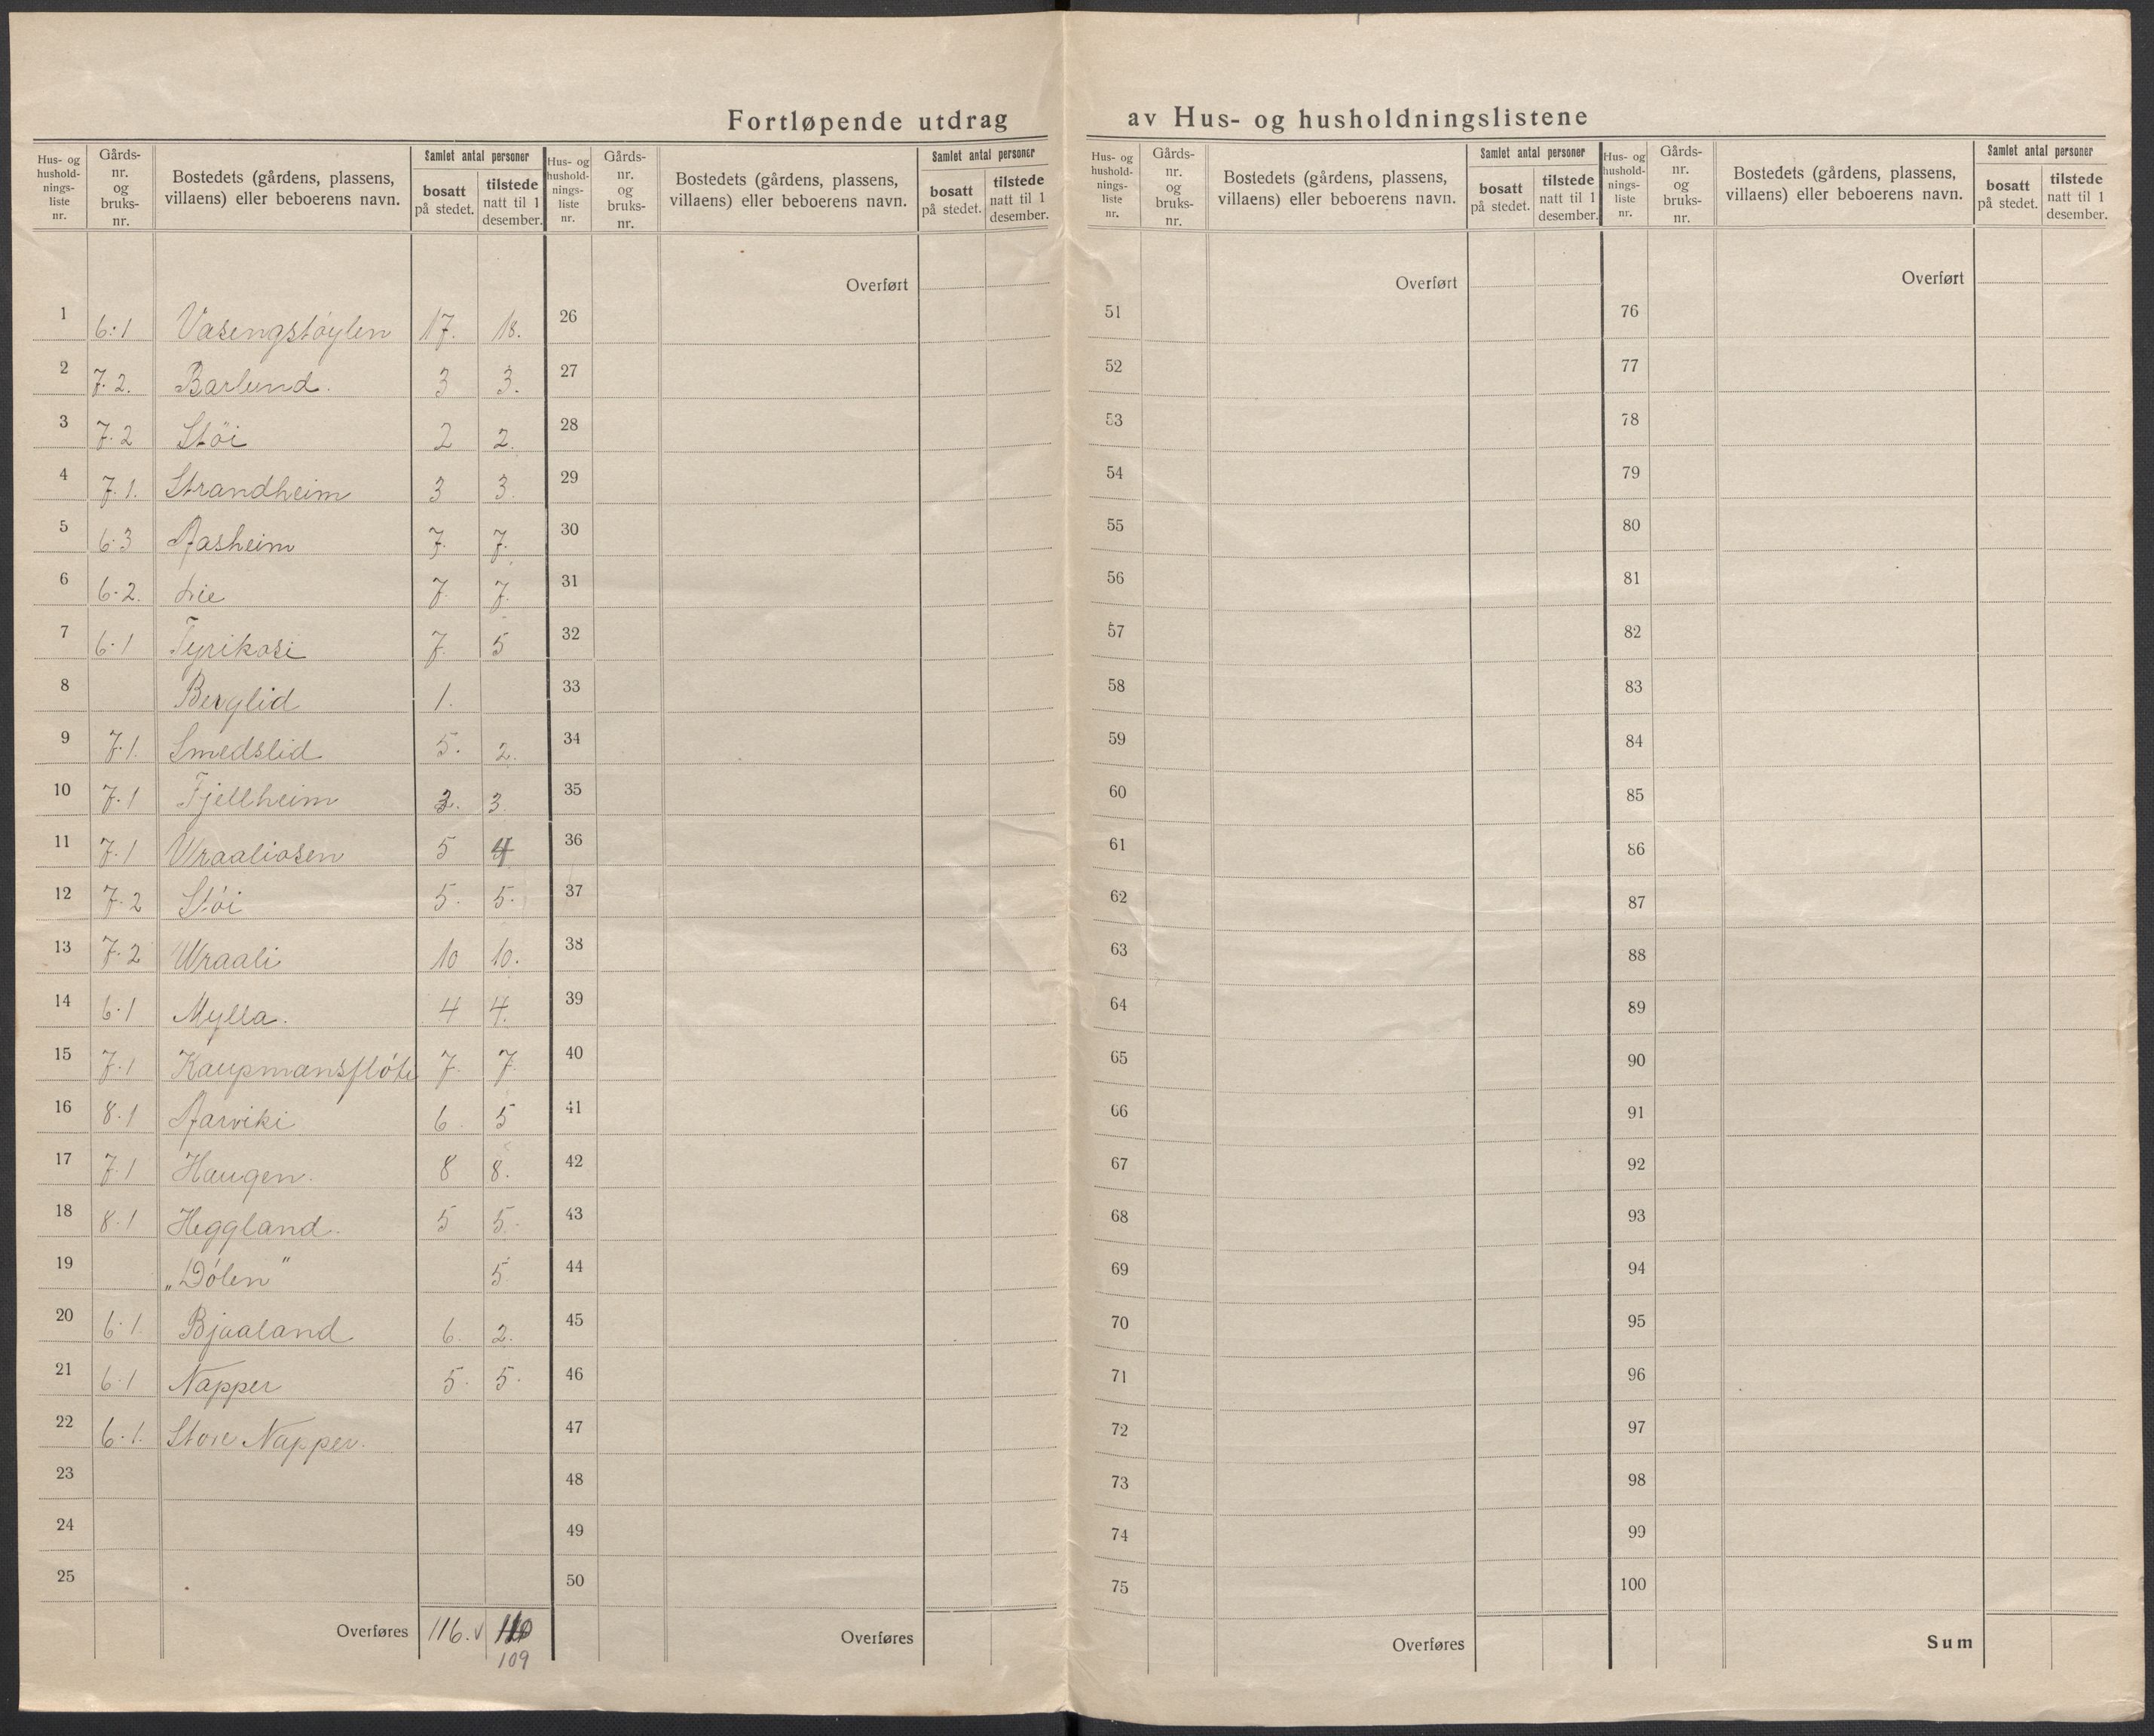 Fortløpende utdrag av Hus- og husholdningslistene
Hus- og hushold-nings-liste nr. | Gårds-nr. og bruks-nr. | Bostedets (gårdens, plassens, villaens) eller beboerens navn. | Samlet antal personer | bosatt på stedet. | tilstede natt til 1 desember.
1 6.1 Vasengstøylen 17. 18.
2 7.2. Barlund. 3 3.
3 7.2 Støi 2 2.
4 7.1. Strandheim 3 3.
5 6.3 Aasheim 7. 7.
6 6.2. Lie 7. 7.
7 6.1 Tyrikosi 7. 5
8 Berglid 1.
9 7.1. Smedslid 5. 2.
10 7.1 Fjellheim 3. 3.
11 7.1 Vraaliosen 5 4
12 7.2 Støi 5. 5.
13 7.2 Wraali 10 10.
14 6.1 Mylla. 4 4.
15 7.1 Kaupmansfløte 7. 7
16 8.1 Aarviki 6. 5
17 7.1 Haugen. 8 8.
18 8.1 Heggland. 5 5.
19 „Dølen" 5
20 6.1. Bjaaland 6. 2.
21 6.1 Napper 5. 5.
22 6.1. Store Napper.
23
24
25
Overføres 116. v 110
109
Hus- og hushold-nings-liste nr. | Gårds-nr. og bruks-nr. | Bostedets (gårdens, plassens, villaens) eller beboerens navn. | Samlet antal personer | bosatt på stedet. | tilstede natt til 1 desember.
Overført
26
27
28
29
30
31
32
33
34
35
36
37
38
39
40
41
42
43
44
45
46
47
48
49
50
Overføres
Hus- og hushold-nings-liste nr. | Gårds-nr. og bruks-nr. | Bostedets (gårdens, plassens, villaens) eller beboerens navn. | Samlet antal personer | bosatt på stedet. | tilstede natt til 1 desember.
Overført
51
52
53
54
55
56
57
58
59
60
61
62
63
64
65
66
67
68
69
70
71
72
73
74
75
Overføres
Hus- og hushold-nings-liste nr. | Gårds-nr. og bruks-nr. | Bostedets (gårdens, plassens, villaens) eller beboerens navn. | Samlet antal personer | bosatt på stedet. | tilstede natt til 1 desember.
Overført
76
77
78
79
80
81
82
83
84
85
86
87
88
89
90
91
92
93
94
95
96
97
98
99
100
Sum